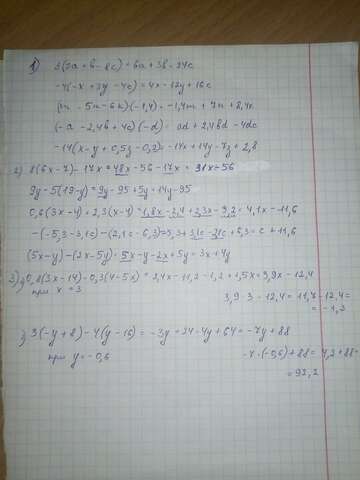 1) 3(2a+b-8c)=6a+3b-24c
-4(-x+3y-4c)=4x-12y+16c
(m-5n-6k)(-1,4)=-1,4m+7n+8,4k
(-a-2,4b+4c)(-d)=ad+2,4bd-4dc
-14(x-y+0,5z-0,2)=-14x+14y-7z+2,8
2) 8(6x-7)-17x=48x-56-17x=31x-56
9y-5(19-y)=9y-95+5y=14y-95
0,6(3x-4)+2,3(x-4)=1,8x-2,4+2,3x-9,2=4,1x-11,6
-(-5,3-3,1c)-(2,1c-6,3)=5,3+3,1c-2,1c+6,3=c+11,6
(5x-y)-(2x-5y)=5x-y-2x+5y=3x+4y
3) 1) 0,8(3x-14)-0,3(4-5x)=2,4x-11,2-1,2+1,5x=3,9x-12,4
при x=3
3,9·3-12,4=11,7-12,4=
=-1,3
2) 3(-y+8)-4(y-16)=-3y+24-4y+64=-7y+88
при y=-0,6
-7·(-0,6)+88=4,2+88=
=92,2